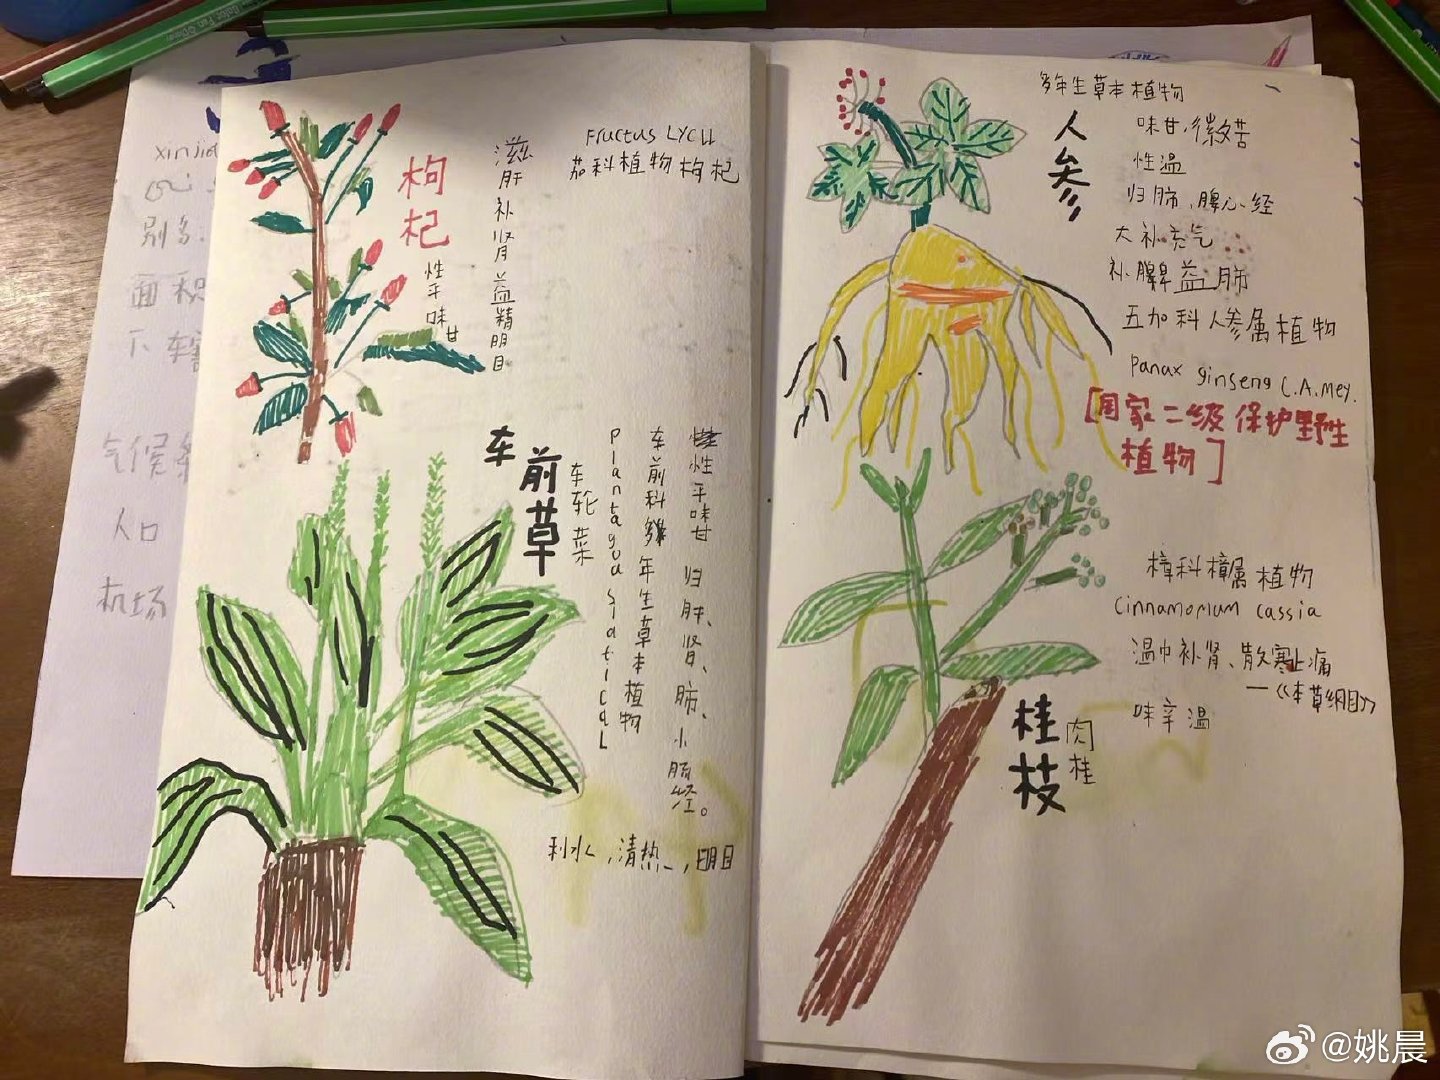 xinjia
别名
面积
下辖
气候
人口
机场
枸杞
性平味甘
滋肝补肾益精明目
Fructus LYCII
茄科植物枸杞
车前草
车轮菜
Plantagoa SiaticaL
车前科多年生草本植物
性平味甘 归肝、肾、肺、小肠经。
利水,清热,明目
多年生草本植物
人参
味甘、微苦
性温
归肺、脾心经
大补元气
补脾益肺
五加科人参属植物
Panax ginseng C.A.Mey.
[国家二级保护野生
植物]
樟科樟属植物
Cinnamomum cassia
温中补肾、散寒止痛
—《本草纲目》
味辛温
桂枝
肉桂
@姚晨